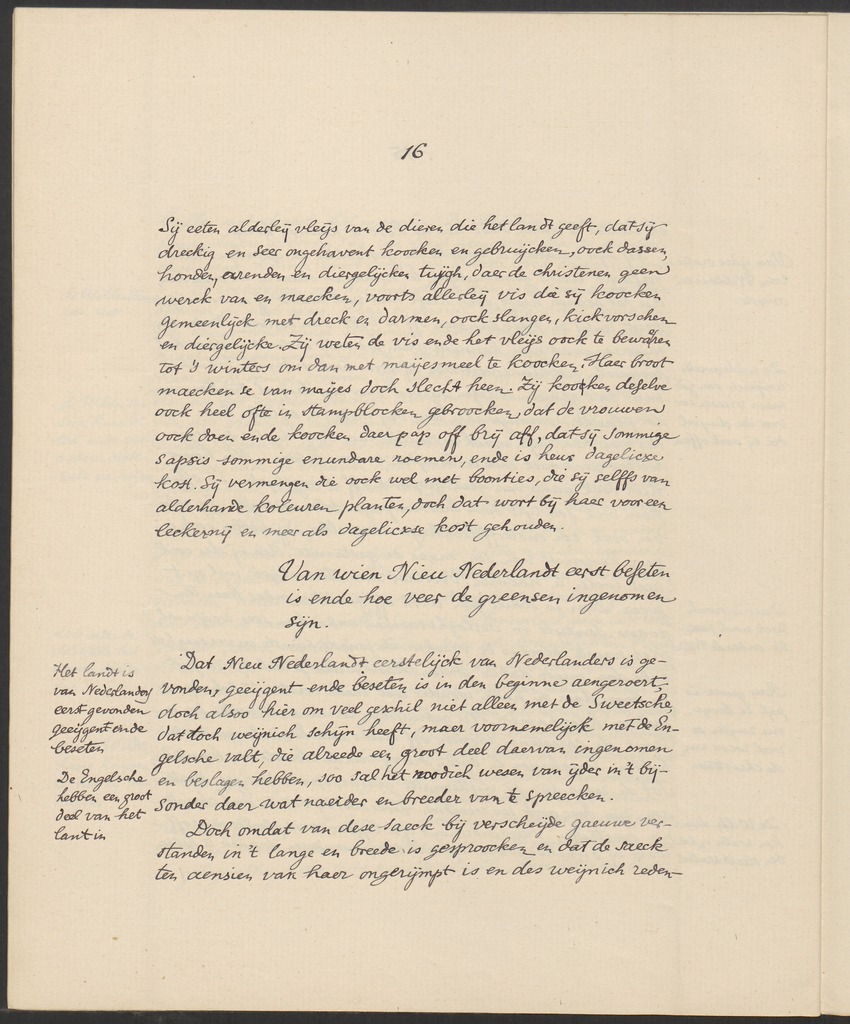 16
Sij eeten alderleij vleijs van de dieren die het landt geeft, dat sij
dreckig en seer ongehavent koocken en gebruijcken, oock dassen,
honden, arenden en diergelijcken tuijgh, daer de christenen geen
werck van en maecken, voorts allerleij vis die sij koocken
gemeenlijck met dreck en darmen, oock slangen, kickvorschen
en diergelijcke. Zij weten de vis ende het vleijs oock te bewaren
tot 's winters om dan met maijesmeel te koocken. Haer broot
maecken se van maijes doch slecht heen. Zij koocken deselve
oock heel ofte in stampblocken gebroocken, dat de vrouwen
oock doen ende koocken daer pap off brij aff, dat sij sommige
sapsis sommige enundare noemen, ende is heur dagelicxe
kost. Sij vermengen die oock wel met boonties, die sij selffs van
alderhande koleuren planten, doch dat wort bij haer voor een
leckernij en meer als dagelicxse kost gehouden.
Van wien Nieu Nederlandt eerst beseten
is ende hoe veer de greensen ingenomen
sijn.
Het landt is
van Nederlanders
eerst gevonden
geeijgent ende
beseten
Dat Nieu Nederlandt eerstelijck van Nederlanders is ge-
vonden, geeijgent ende beseten is in den beginne aengeroert,
doch alsoo hier om veel geschil niet alleen met de Sweetsche,
dat toch weijnich schijn heeft, maer voornemelijck met de En-
gelsche valt, die alreede een groot deel daervan ingenomen
en beslagen hebben, soo sal het noodich wesen van ijder in 't bij-
sonder daer wat naerder en breeder van te spreecken.
De Engelsche
hebben een groot
deel van het
lant in
Doch omdat van dese saeck bij verscheijde gaeuwe ver-
standen in 't lange en breede is gesproocken en dat de saeck
ten aensien van haer ongerijmpt is en des weijnich reden-